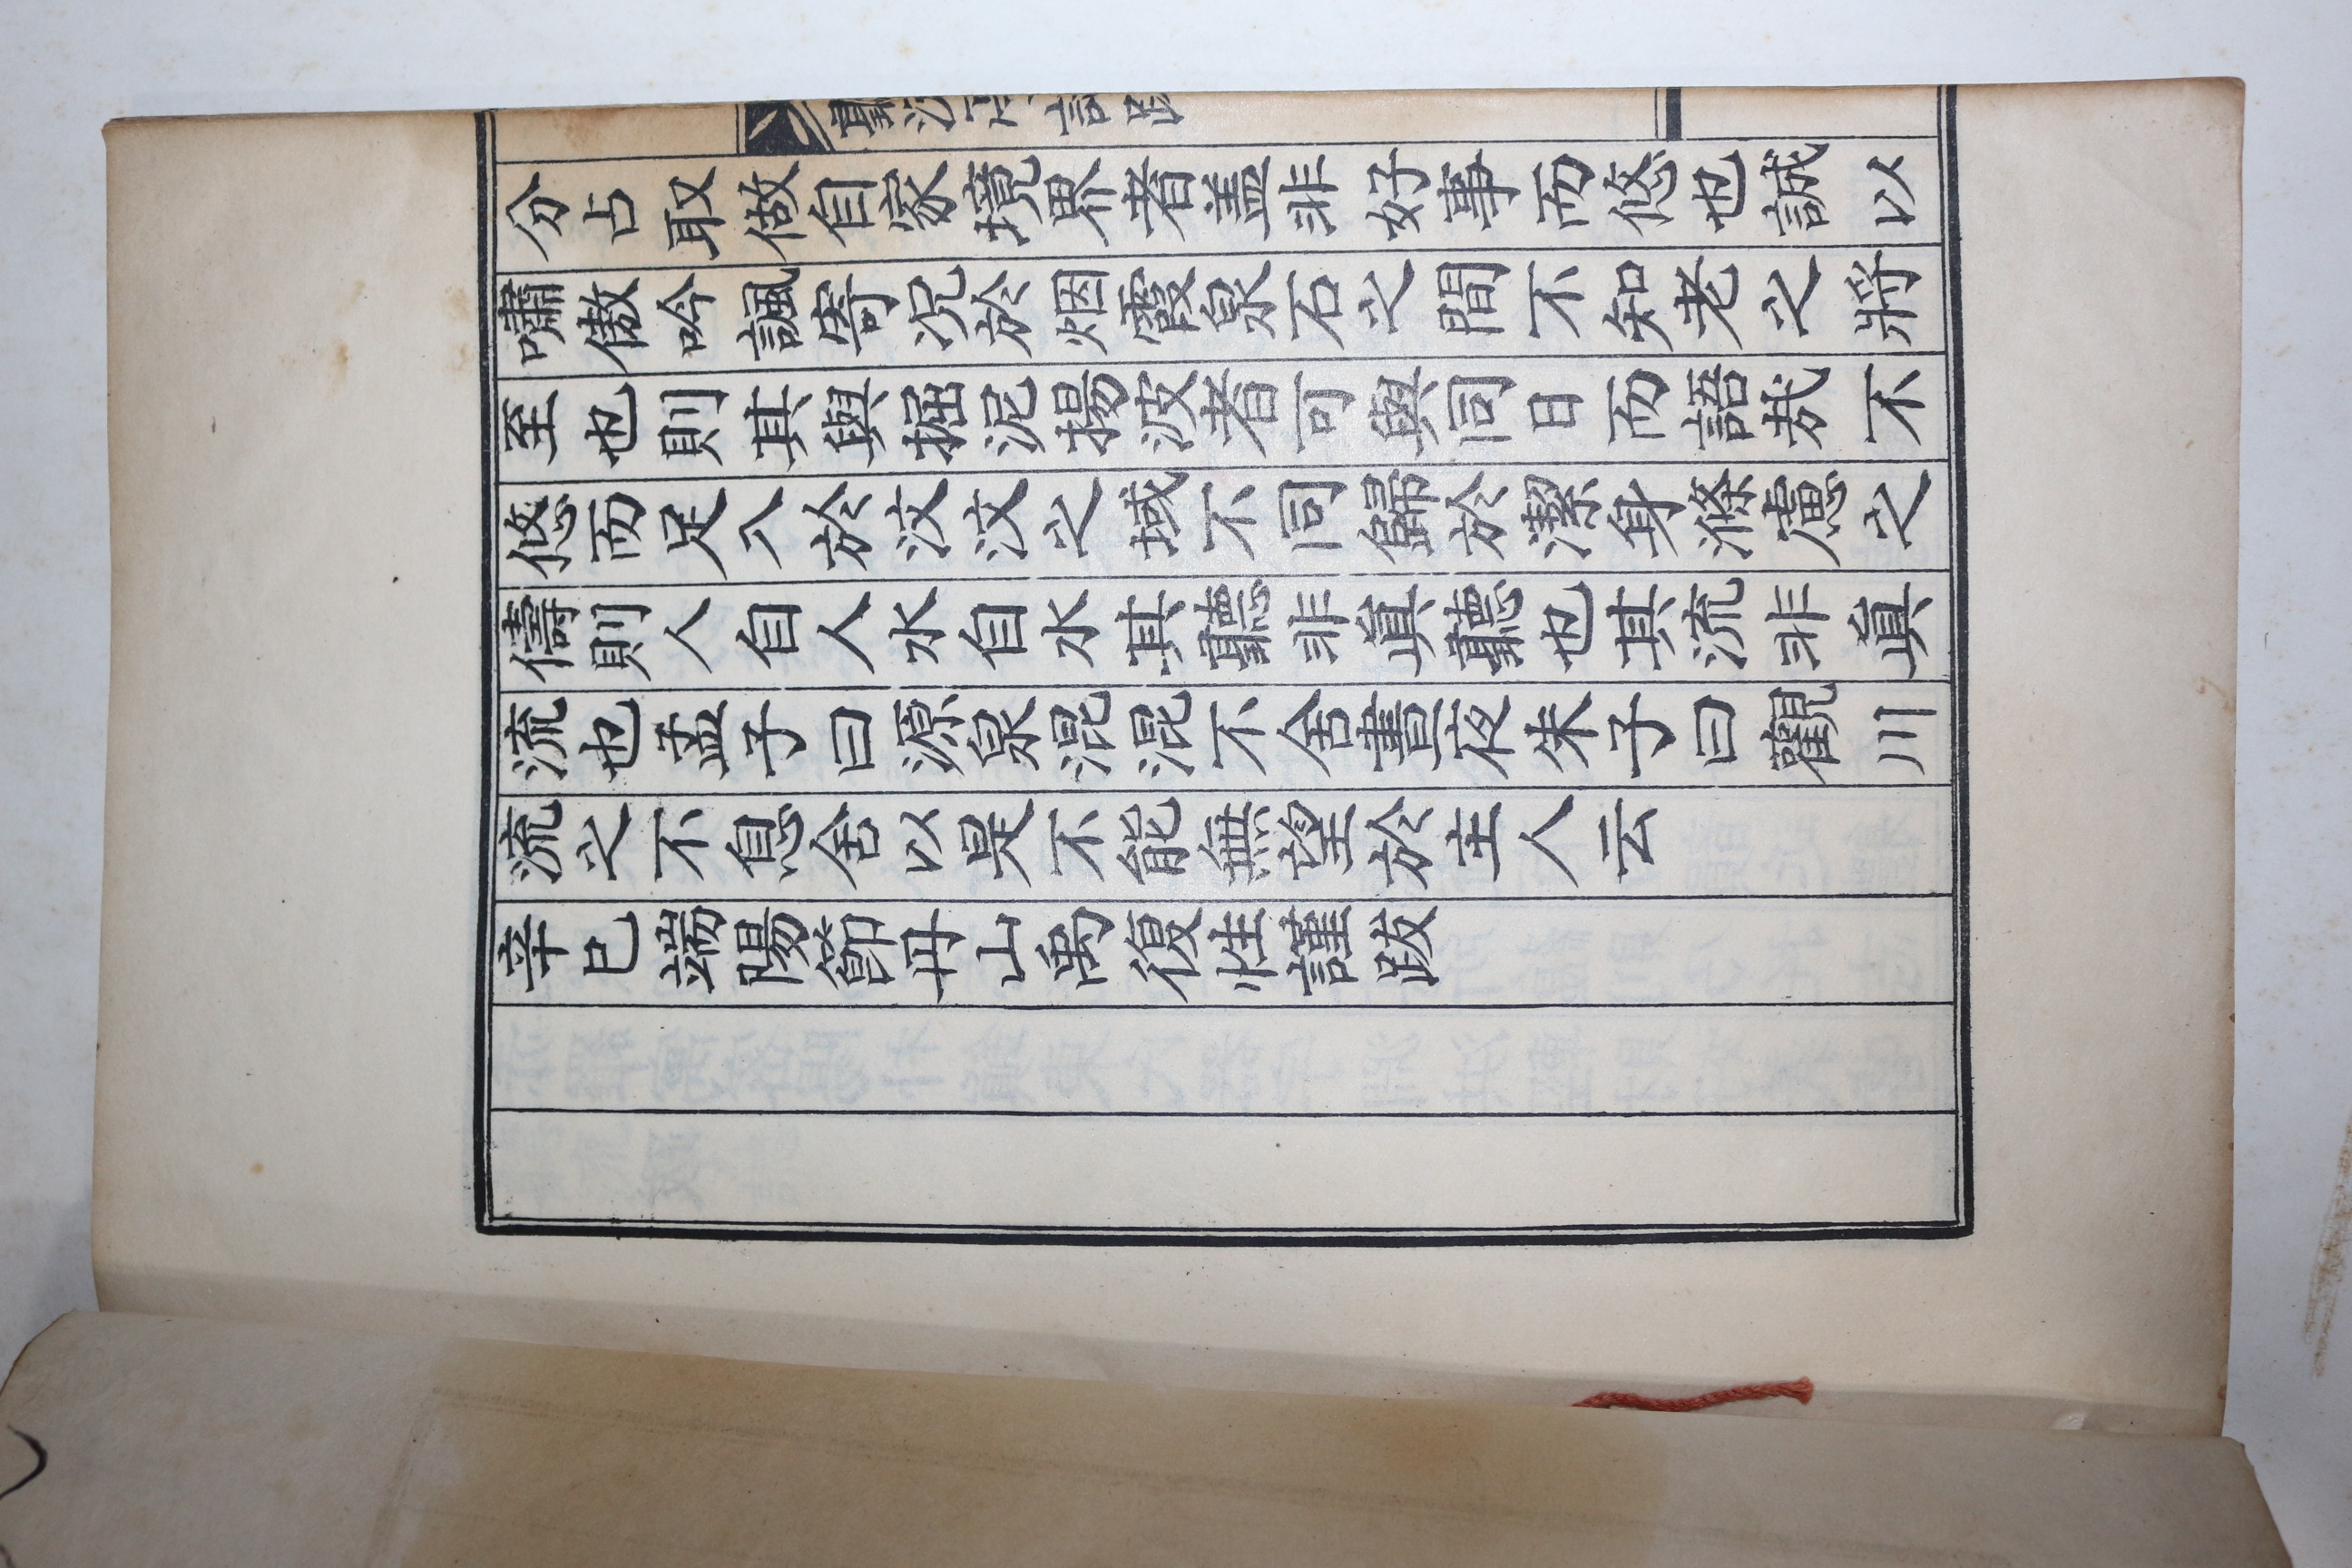 分占取做自家境界者盖非好事而悠也誠以
嘯傲吟諷寄况於烟霞泉石之間不知老之將
至也則其與掘泥揚波者可與同日而語㢤不
悠而足入於汶汶之域不同歸於潔身滌慮之
儔則人自人水自水其聽非眞聽也其流非眞
流也孟子曰源泉混混不舍晝夜朱子曰觀川
流之不息舍以是不能無望於主人云
辛巳端陽節丹山禹復性謹跋